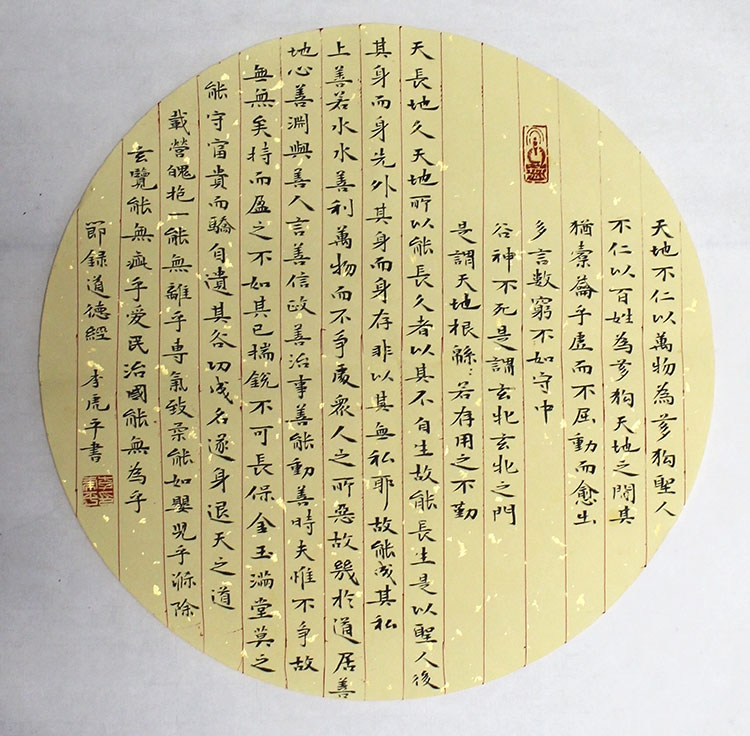 天地不仁以萬物為芻狗聖人
不仁以百姓為芻狗天地之間其
猶橐籥乎虛而不屈動而愈出
多言數窮不如守中
谷神不死是謂玄牝玄牝之門
是謂天地根綿:若存用之不勤
天長地久天地所以能長久者以其不自生故能長生是以聖人後
其身而身先外其身而身存非以其無私耶故能成其私
上善若水水善利萬物而不爭處眾人之所惡故幾於道居善
地心善淵與善人言善信政善治事善能動善時夫惟不爭故
無無矣持而盈之不如其已揣銳不可長保金玉滿堂莫之
能守富貴而驕自遺其咎功成名遂身退天之道
載營魄抱一能無離乎專氣致柔能如嬰兒乎滌除
玄覽能無疵乎愛民治國能無為乎
節錄道德經 李虎平書